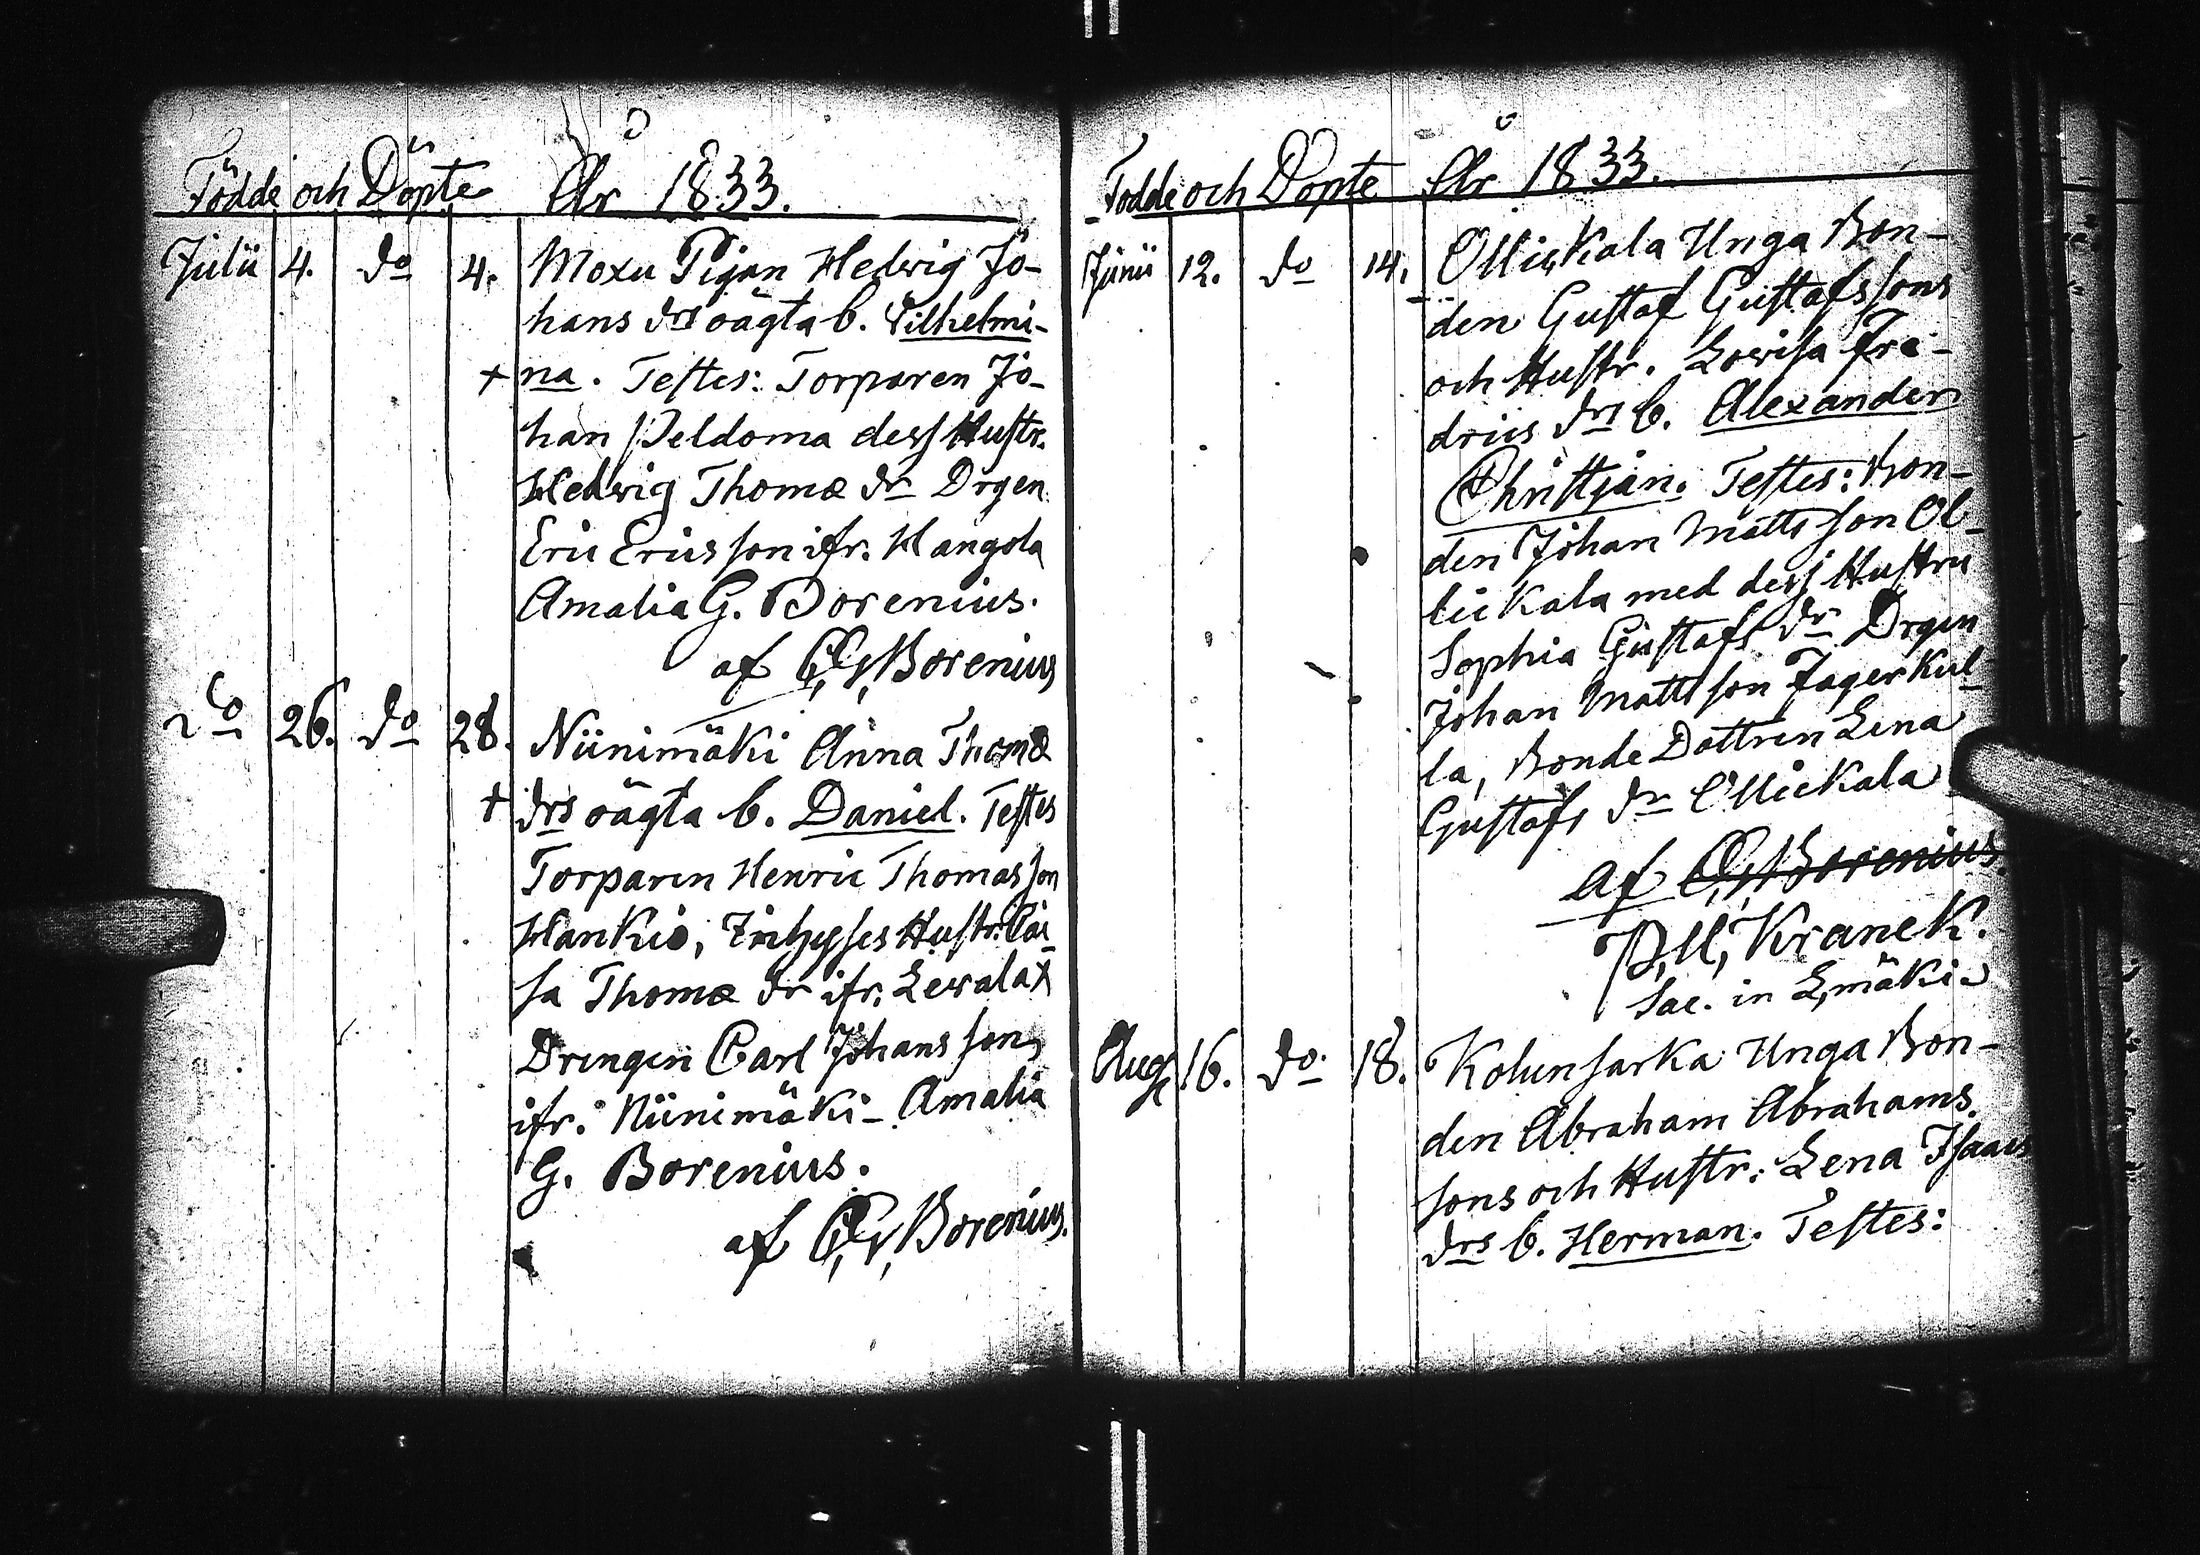 Födde och Döpte År 1833.
Julii 4. do 4. Moxu Pigan Hedvig Jo-
hans drs oägta b. Vilhelmi-
+ na. Testes: Torparen Jo-
han Peldoma dess Hustr.
Hedvig Thomæ dr Drgen
Eric Ericsson ifr. Hangola
Amalia G. Borenius.
af C, G, Borenius
do 26. do 28. Niinimäki Anna Thomæ
+ drs oägta b. Daniel. Testes
Torparen Henric Thomasson
Hankio, Hustr. Cai-
sa Thomæ dr ifr. Lewalax
Drengen Carl Johansson,
ifr. Niinimäki - Amalia
G. Borenius.
af C, G, Borenius.
Födde och Döpte År 1833.
Junii 12. do 14. Ollickala Unga Bon-
den Gustaf Gustafssons
och Hustr. Lovisa Fre-
drics drs b. Alexander
Christjan. Testes: Bon-
den Johan Mattsson Ol-
lickala med dess Hustru
Sophia Gustafs dr Drgen
Johan Mattsson Jagerkul-
la, Bonde Dottren Lena
Gustafs dr Ollickala
af C, G, Borenius.
P, U, Kranck.
Sac. in L,mäki
Aug 16. do 18. Kolunsarka Unga Bon-
den Abraham Abrahams
sons och Hustr: Lena Isaacs
drs b. Herman. Testes: